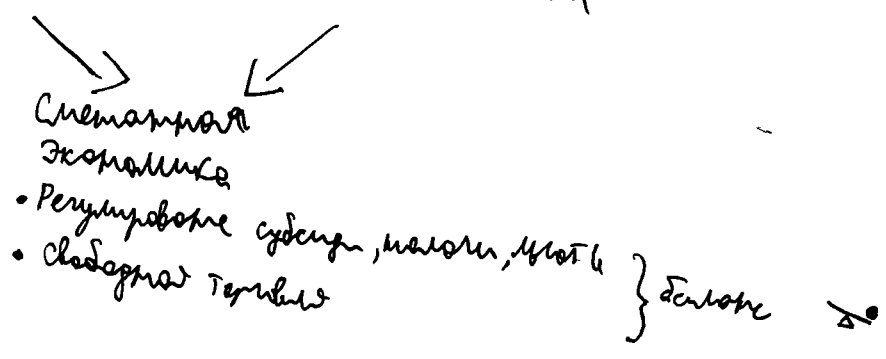 Смешанная
Экономика
• Регулирование субсиди, налоги, льготы
• Свободная торговля } баланс